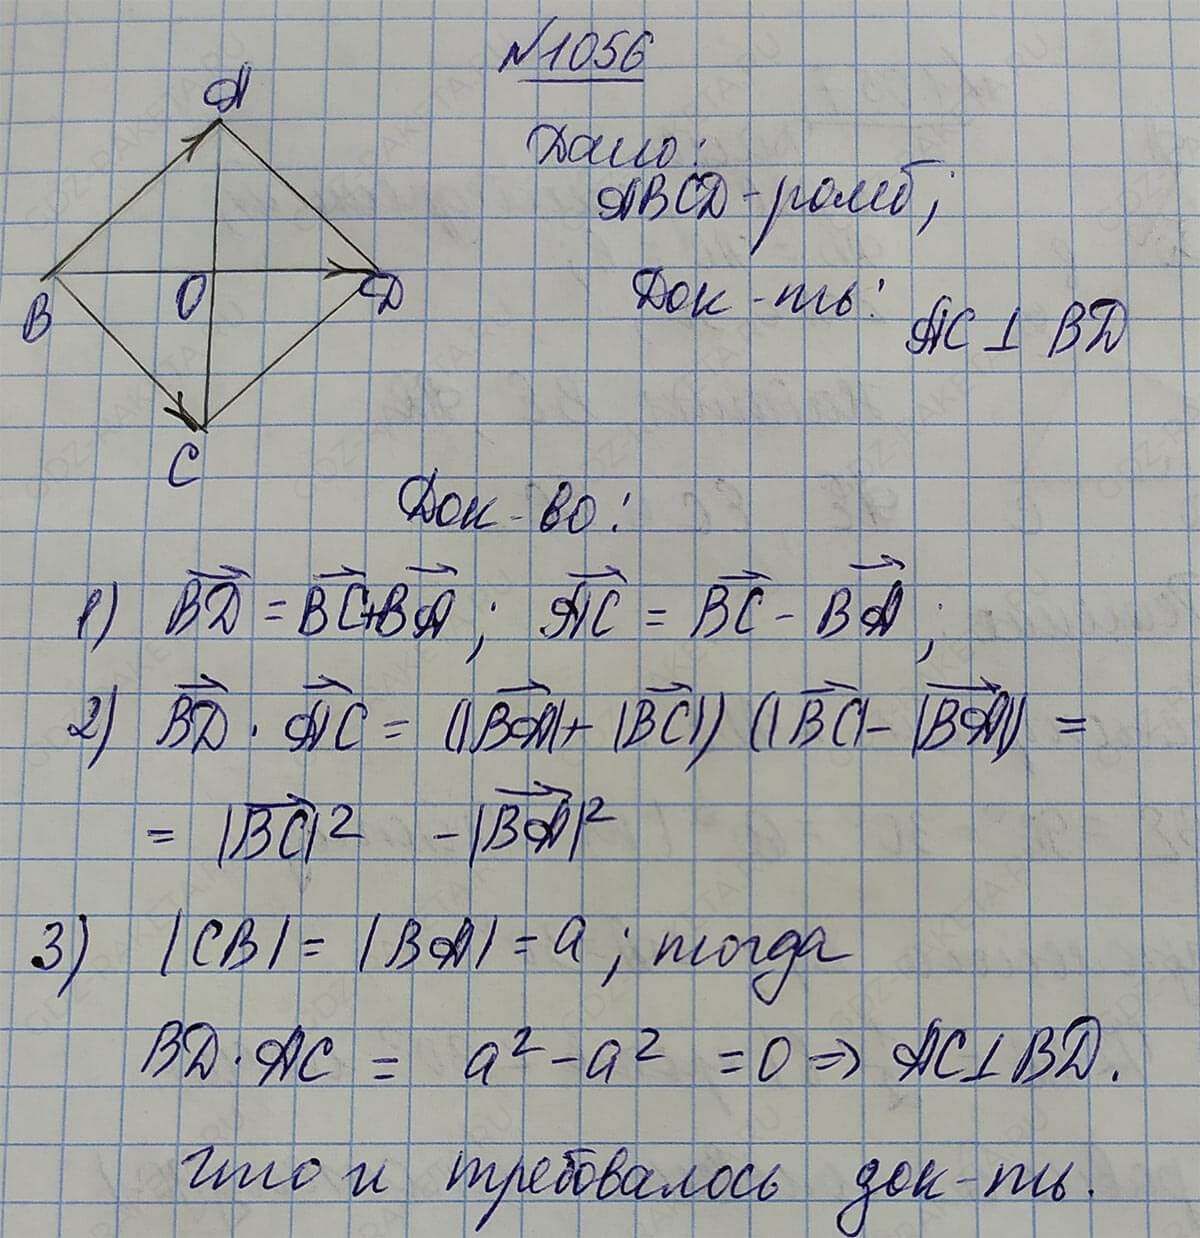 №1056
A
Дано:
ABCD-ромб;
Док-ть:
AC⊥BD
B
O
D
C
Док-во:
1) BD⃗ = BC⃗+BA⃗; AC⃗ = BC⃗ - BA⃗;
2) BD⃗ · AC⃗ = (|BA⃗|+ |BC⃗|) (|BC⃗|- |BA⃗|) =
= |BC⃗|² -|BA⃗|²
3) |CB|= |BA|=a; тогда
BD·AC = a²-a² =0 => AC⊥BD.
Что и требовалось док-ть.